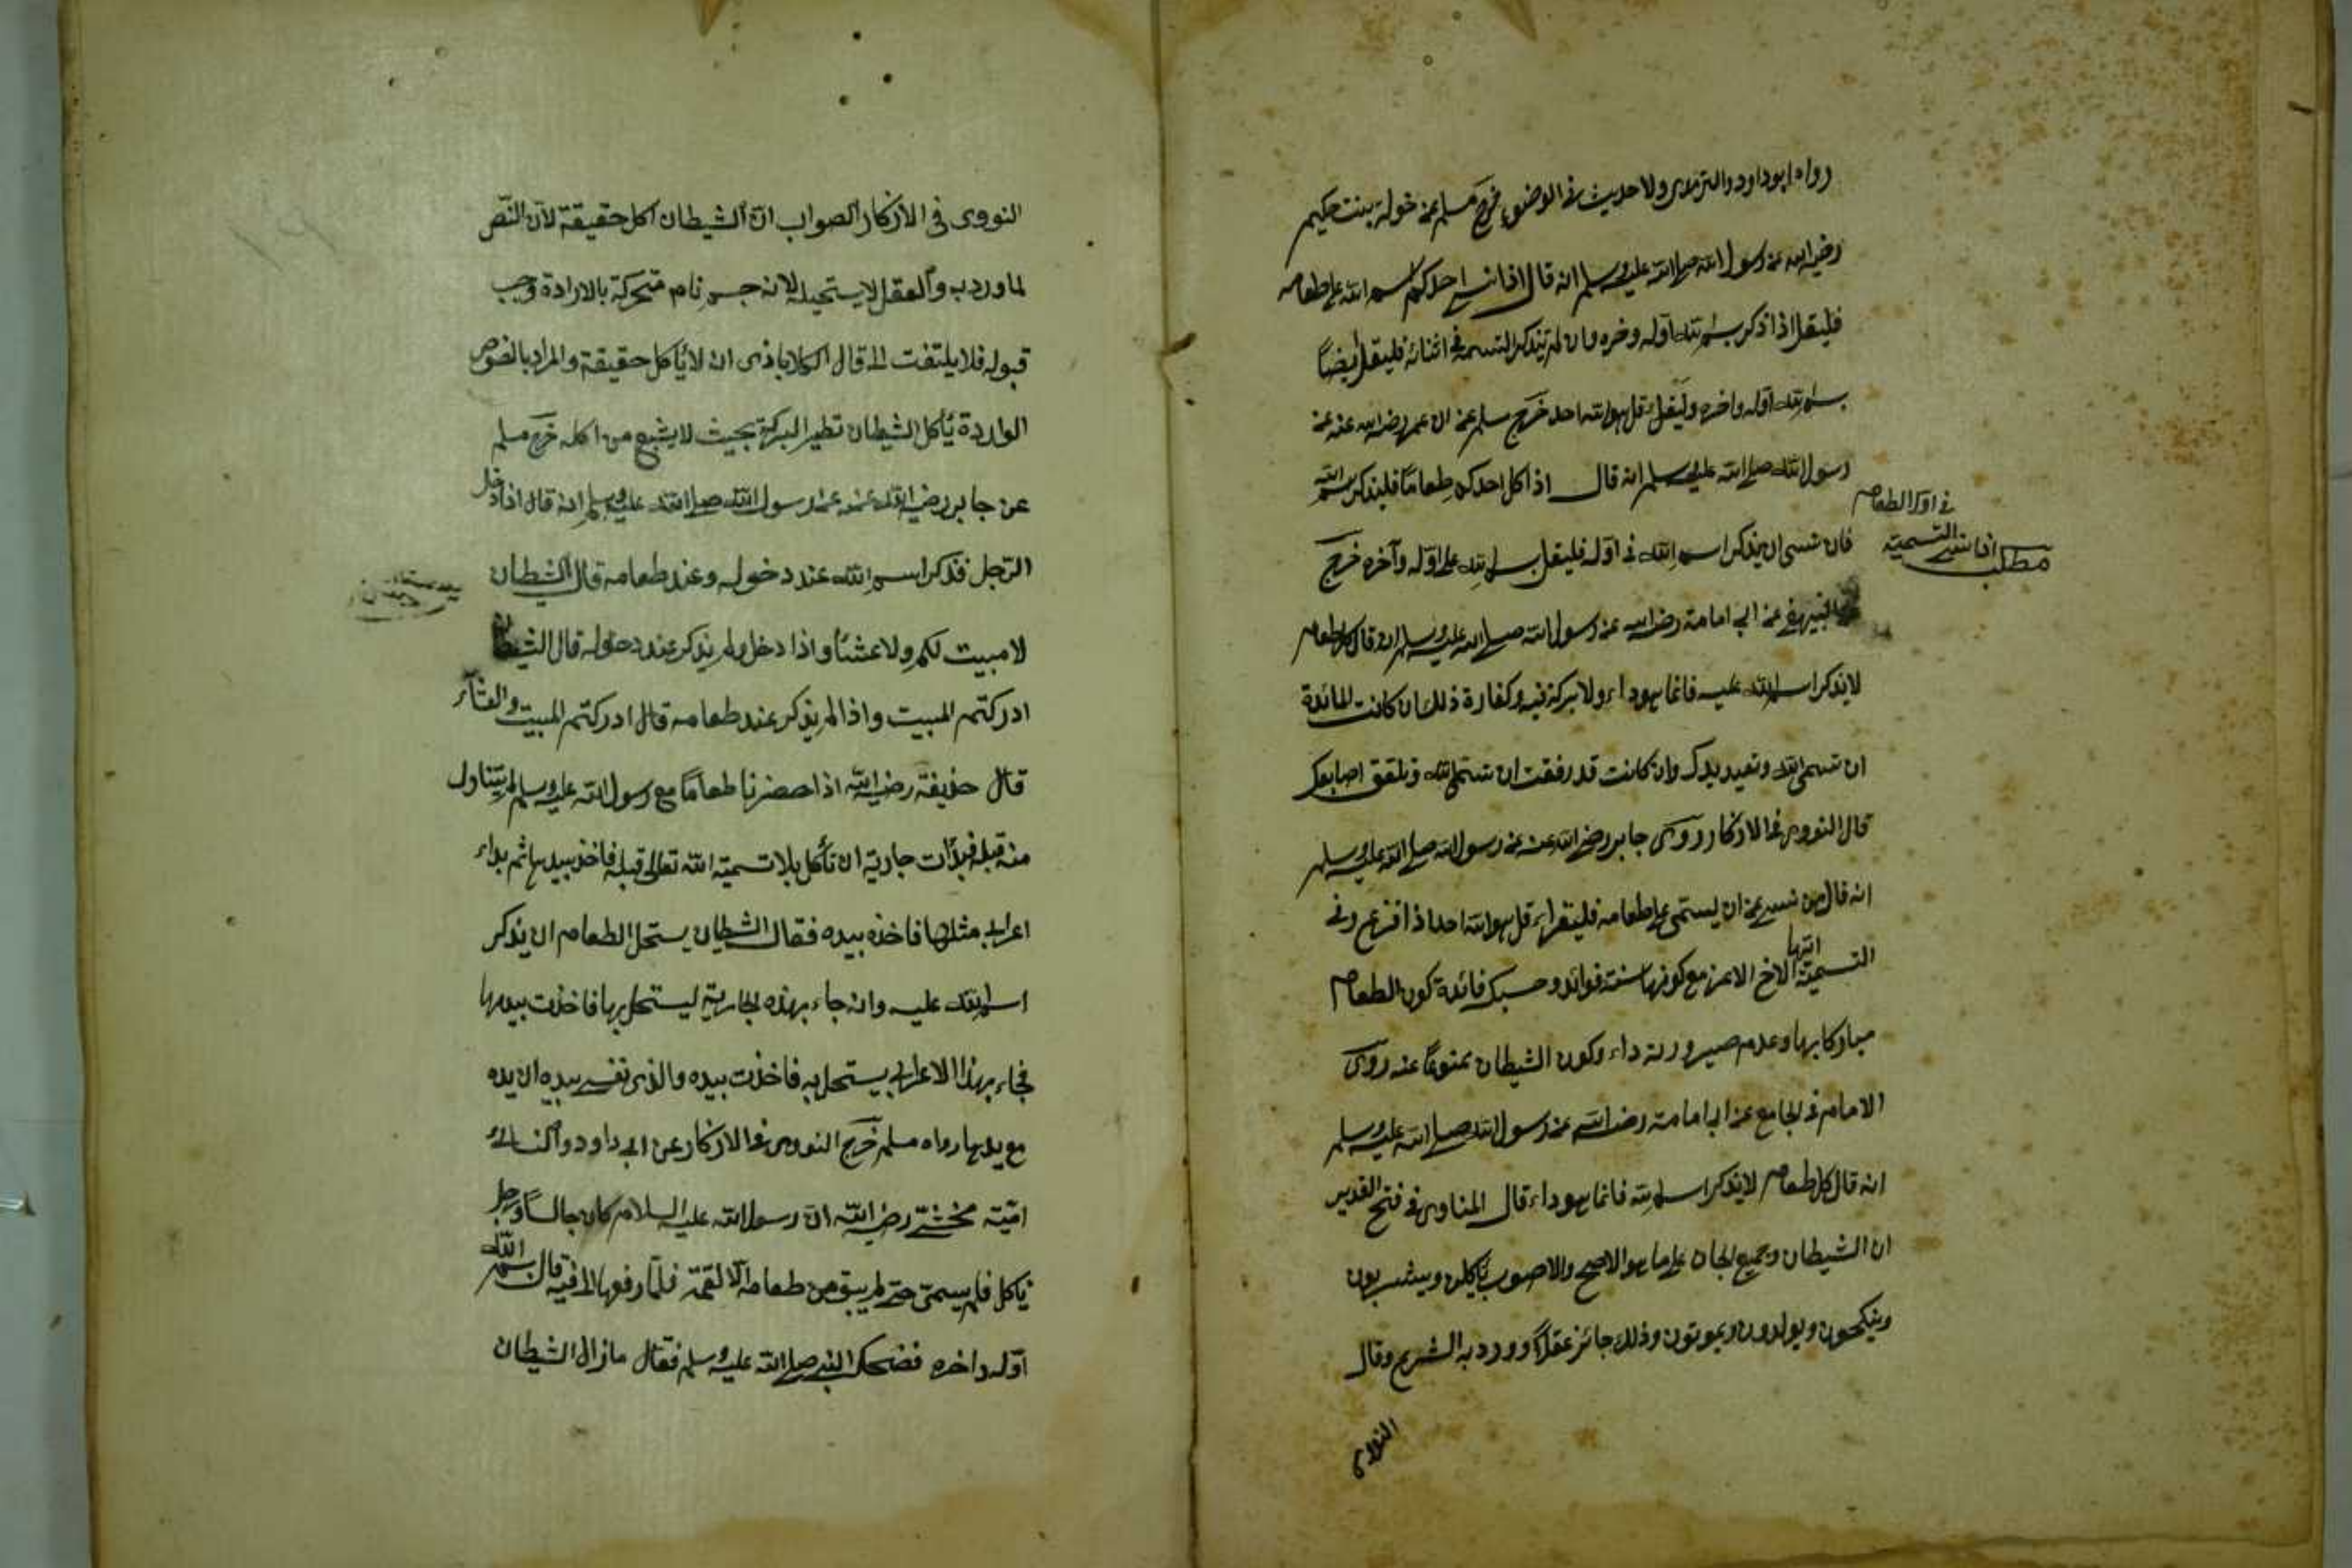 رواه ابو داود والترمذى ولا حديث فى الوضوء خرج مسلم عن خولة بنت حكيم
رضى الله عنه رسول الله صلى الله عليه وسلم انه قال اذا نسى احدكم اسم الله على طعامه
فليقل اذا ذكر بسم الله اوله وخره وان لم يتذكر التسمية فى اثنائه فليقل ايضاً
بسم الله اوله واخره وليقل قل هو الله احد خرج مسلم عن ابن عمر رضى الله عنه عن
رسول الله صلى الله عليه وسلم انه قال اذا كل احدكم طعاماً فليذكر بسم الله
فى اول الطعام
مطلب اذا نسى التسمية
فان نسى ان يذكر اسم الله فى اوله فليقل بسم الله على اوله وآخره خرج
البيهقى عن ابى امامة رضى الله عن رسول الله صلى الله عليه وسلم انه قال كل طعام
لا يذكر اسم الله عليه فانما هو داء ولا بركة فيه وكفارة ذلك ان كانت المائدة
ان تسمى الله وتعيد يدك وان كانت قد رفقت ان تسمى الله وتلعق اصابعك
قال النووى فى الاذكار روى جابر رضى الله عنه عن رسول الله صلى الله عليه وسلم
انه قال من نسى عن ان يسمى على طعامه فليقراء قل هو الله احد اذا فرغ وفى
التسمية انتها الاخ الاعز مع كونها سنة فوائد وحسبك فائدة كون الطعام
مباركا بها وعدم صيرورته داء وكون الشيطان ممنوعاً عنه روى
الامام فى الجامع عن ابى امامة رضى الله عن رسول الله صلى الله عليه وسلم
انه قال كل طعام لا يذكر اسم الله فانما هو داء قال المناوى فى فتح القدير
ان الشيطان وجميع الجان على ما هو الاصح والاصوب يأكلون ويشربون
وينكحون ويولدون ويموتون وذلك جائز عقلاً وورد به الشرع وقال
النووى
النووى فى الاذكار الصواب ان الشيطان اكل حقيقة لان النص
لما ورد به والعقل لا يستحيله لانه جسم نام متحركة بالارادة وجب
قبوله فلا يلتفت الى قال الكلاباذى ان لا يأكل حقيقة والمراد بالنصوص
الواردة يأكل الشيطان تطير البركة بحيث لا يشبع من اكله خرج مسلم
عن جابر رضى الله عنه عن رسول الله صلى الله عليه وسلم انه قال اذا دخل
الرجل فذكر اسم الله عند دخوله وعند طعامه قال الشيطان
لا مبيت لكم ولا عشاء واذا دخل ولم يذكر عند دخوله قال الشيطان
ادركتم المبيت واذا لم يذكر عند طعامه قال ادركتم المبيت والعشاء
قال حذيفة رضى الله اذا حضرنا طعاماً مع رسول الله عليه وسلم لم يتناول
منه قبله فبدأت جارية ان تأكل بلا تسمية الله تعالى قبله فاخذ بيدها ثم بداء
اعرابى مثلها فاخذه بيده فقال الشيطان يستحل الطعام ان يذكر
اسم الله عليه وانه جاء بهذه الجارية ليستحل بها فاخذت بيدها
فجاء بهذا الاعرابى يستحل به فاخذت بيده والذى نفسى بيده ان يده
مع يدها رواه مسلم خرج النووى فى الاذكار عن ابى داود والنسائى
امية مخشى رضى الله ان رسول الله عليه السلام كان جالساً ورجل
يأكل فلم يسمى حتى لم يبق من طعامه الا لقمة فلما رفعها الى فيه قال بسم الله
اوله واخره فضحك النبى صلى الله عليه وسلم فقال ما زال الشيطان